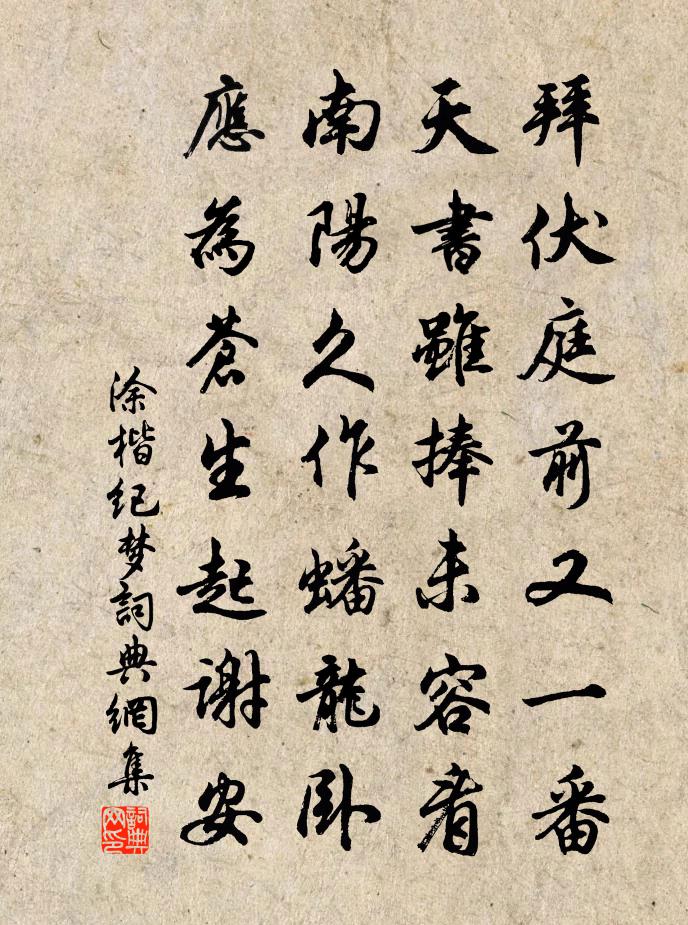 拜伏庭前又一番
天書雖捧未容看
南陽久作蟠龍臥
應為蒼生起謝安
涂楷纪梦詞典網集
詞典网印